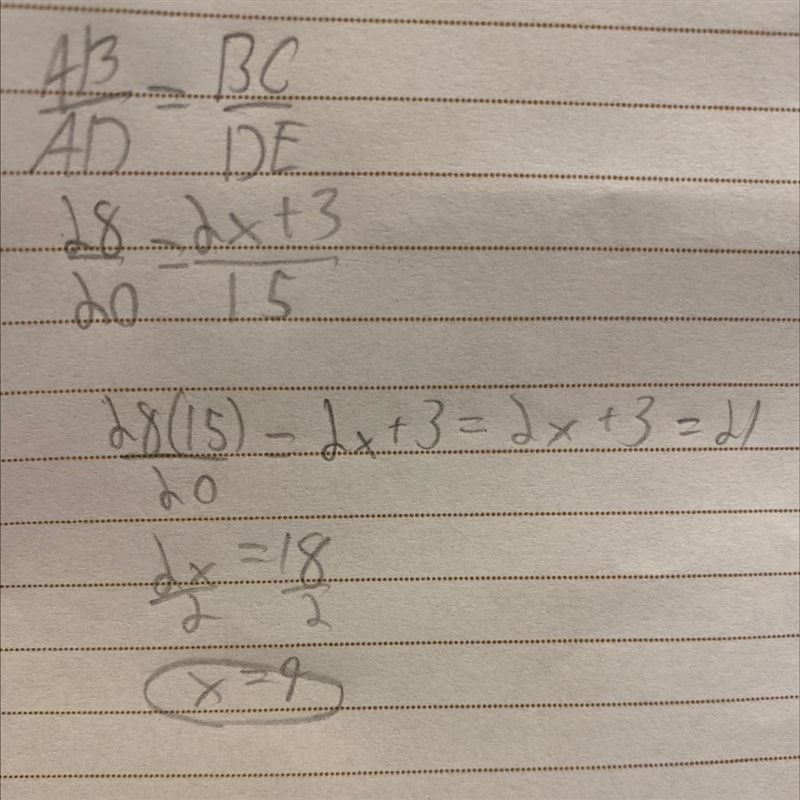 AB/AD = BC/DE
28/20 = 2x+3/15
28(15)/20 = 2x+3 = 2x+3 = 21
2x/2 = 18/2
x=9